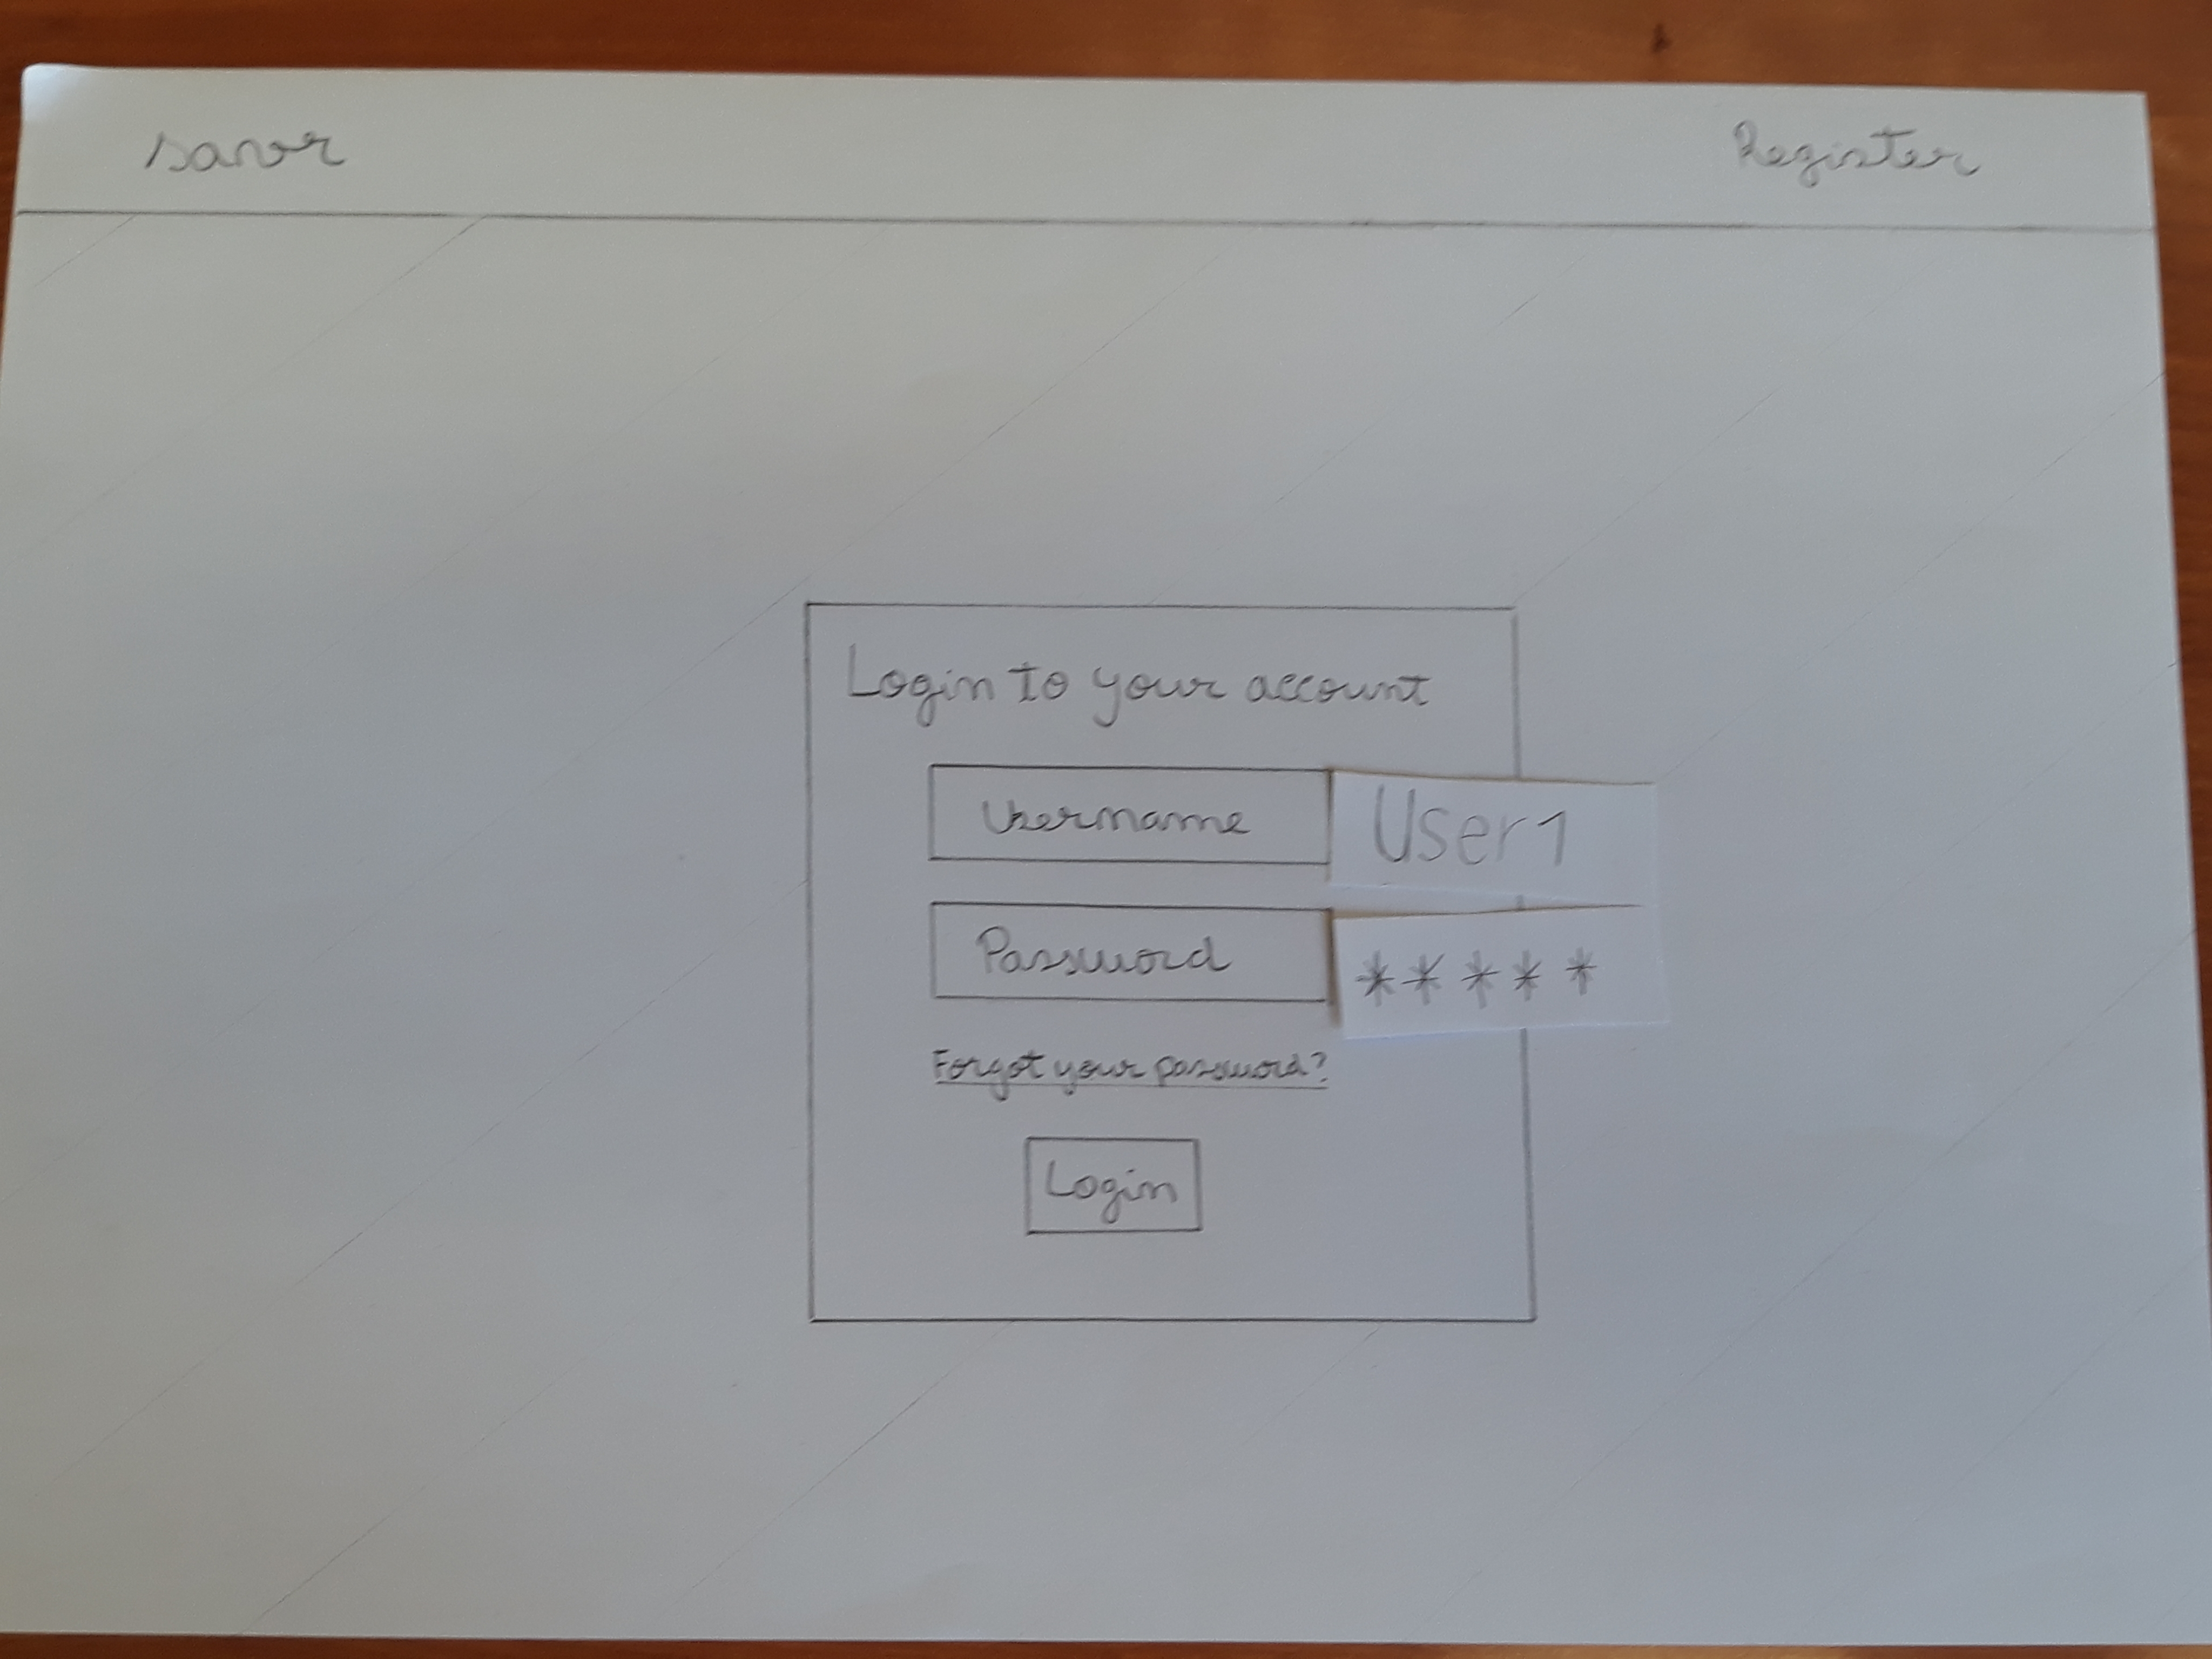 savr
Register
Login to your account
Username
User1
Password
*****
Forgot your password?
Login